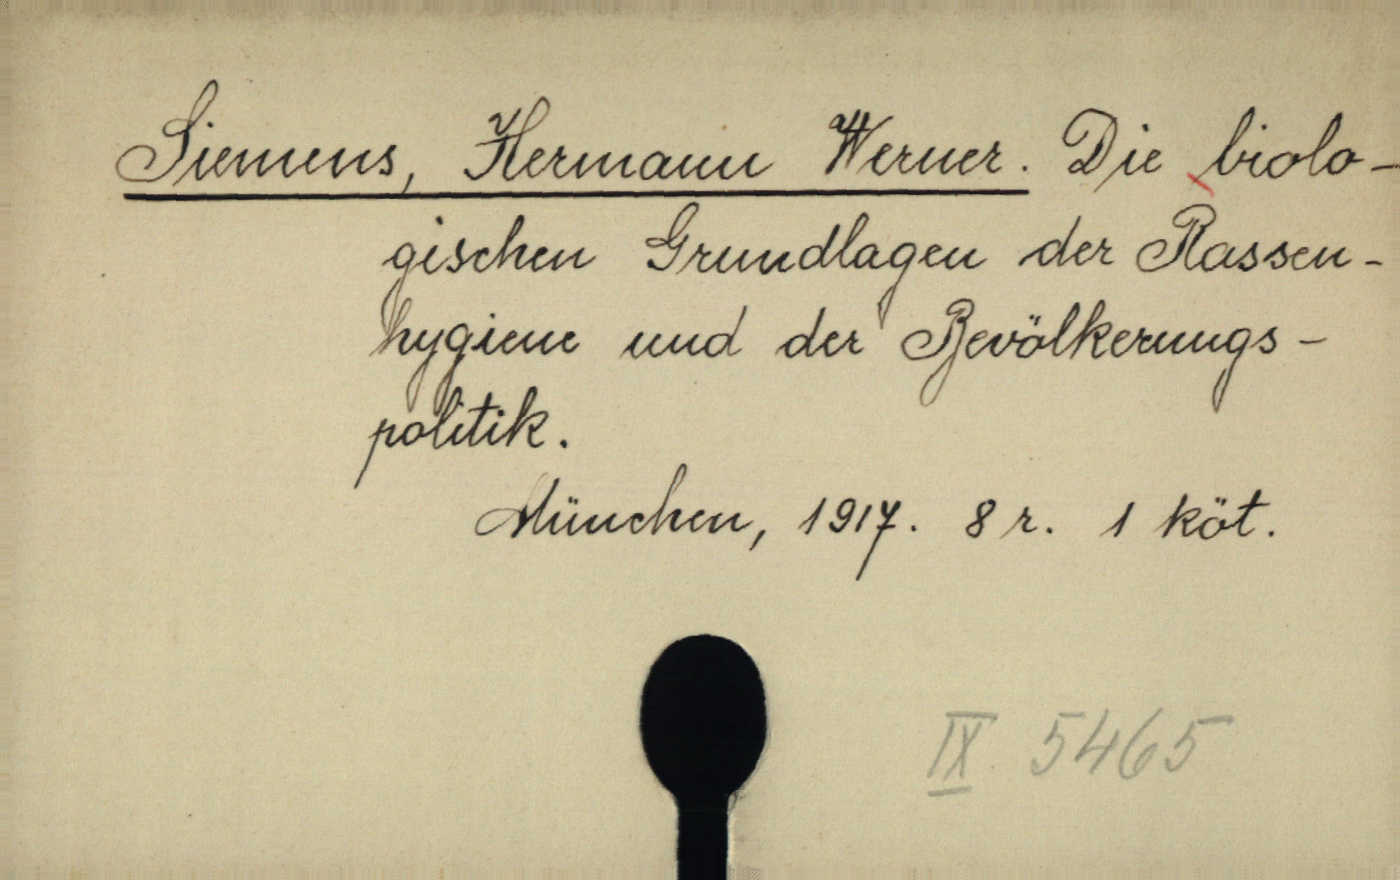 Siemens, Hermann Werner. Die biolo-
gischen Grundlagen der Rassen-
hygiene und der Bevölkerungs-
politik.
München, 1917. 8 r. 1 köt.
IX 5465